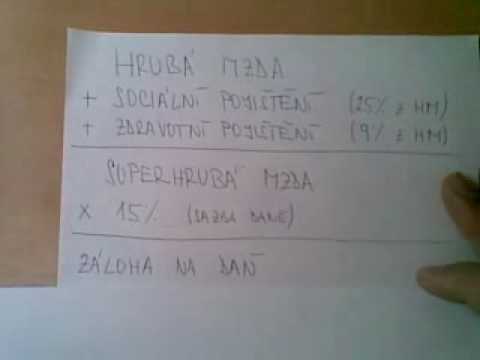 HRUBÁ MZDA
+ SOCIÁLNÍ POJIŠTĚNÍ (25% z HM)
+ ZDRAVOTNÍ POJIŠTĚNÍ (9% z HM)
SUPERHRUBÁ MZDA
x 15% (SAZBA DANĚ)
ZÁLOHA NA DAŇ